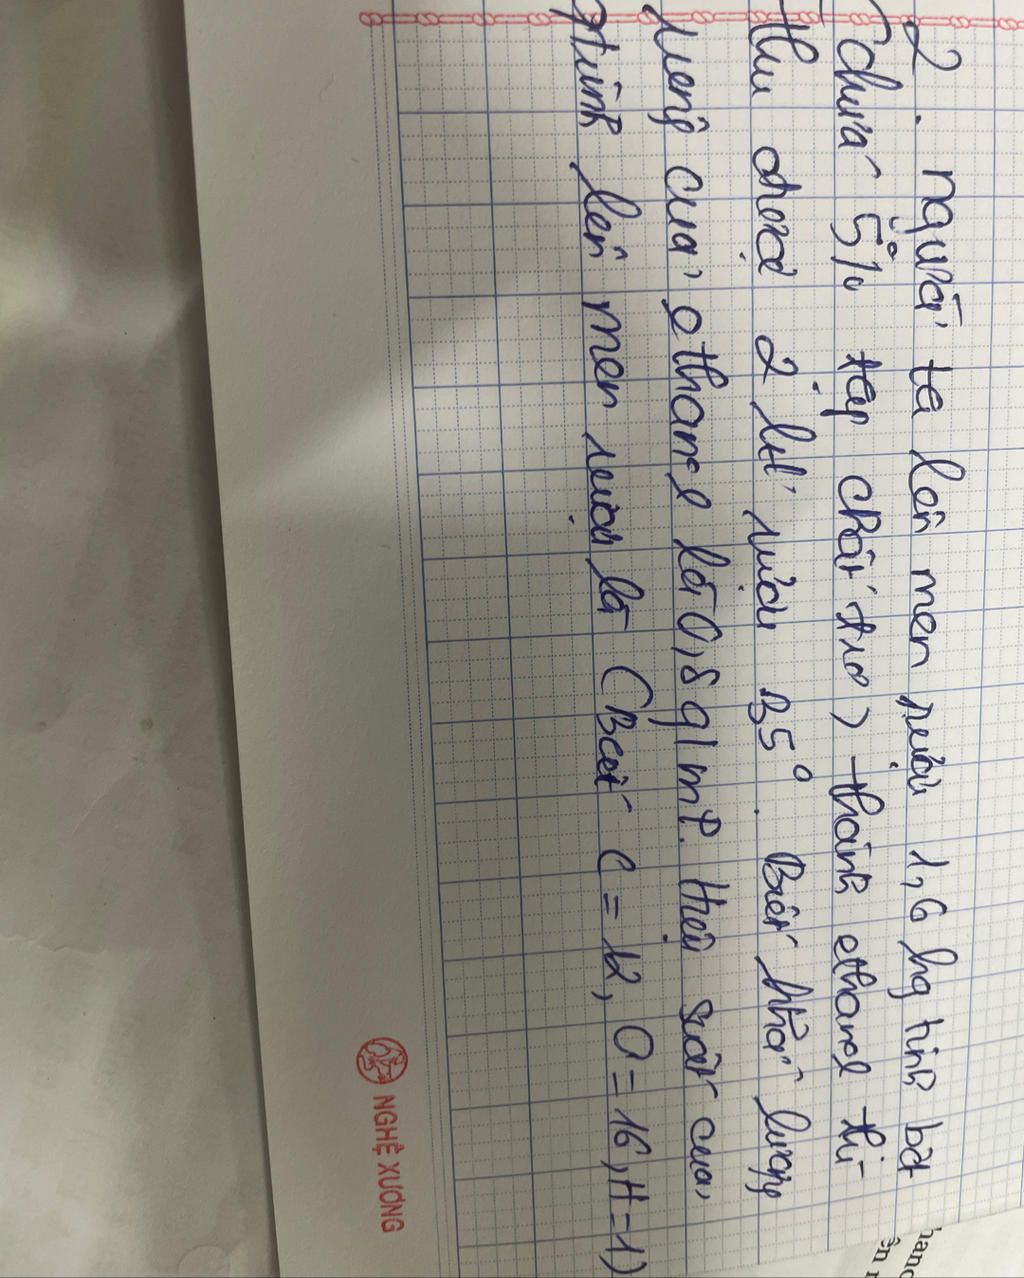 2. người ta lên men rượu 1,6 kg tinh bột
(chứa 5% tạp chất trơ) thành ethanol thì
thu được 2 lít rượu 35°. Biết khối lượng
riêng của ethanol là 0,8 g/ml. Hiệu suất của
trình lên men rượu là (Biết C = 12, O = 16, H = 1)
NGHỆ XƯƠNG